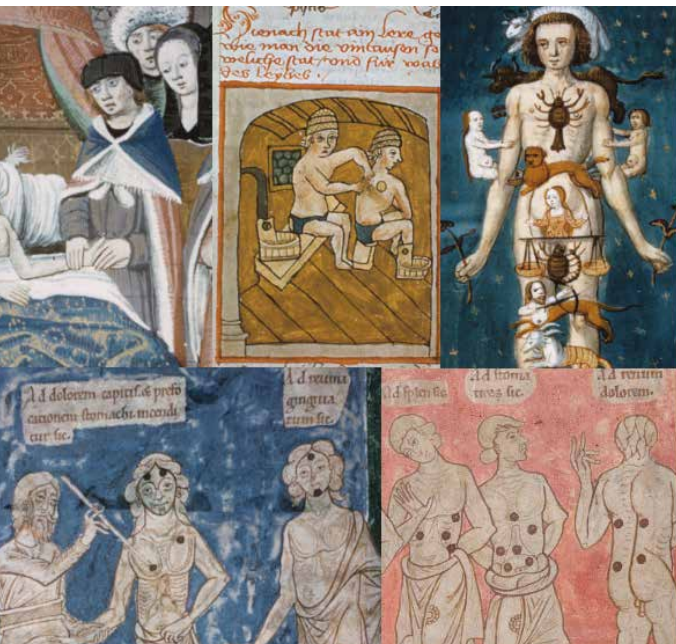 Hienach stat ain lere ge
wie man die vintausen so
weliche stat vnd für was
des Leybes.
Ad dolorem capitis. & prefo
cationem stomachi. incendi
tur sic.
Ad reuma
gingiua
rum sic.
Ad splen sic.
Ad stoma
ticos sic.
Ad renum
dolorem.